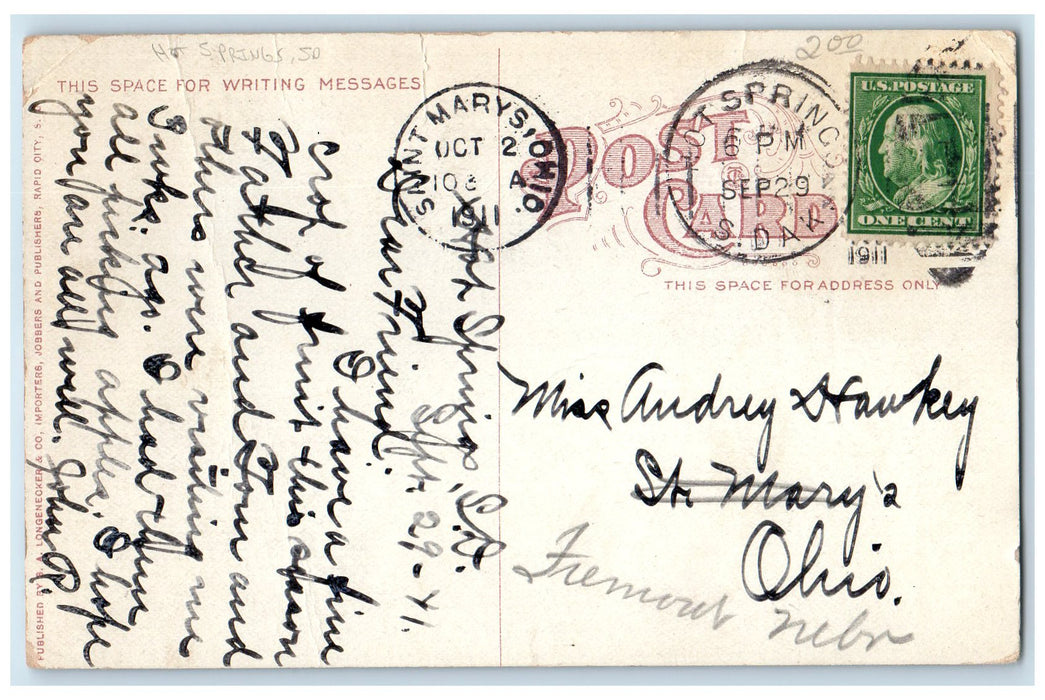 HOT SPRINGS, SD
200
THIS SPACE FOR WRITING MESSAGES
SAINT MARYS, OHIO.
OCT 2
A
1911
POST CARD
HOT SPRINGS
6 PM
SEP 29
S. DAK
1911
U.S. POSTAGE
ONE CENT
THIS SPACE FOR ADDRESS ONLY
Hot Springs, S.D.
Sept. 29-11.
Dear Friend.
I have a fine
crop of fruit this season
Father and Tom and
others were visiting me
2 wks. ago. I had them
all picking apples. I hope
you are all well. John R.
Miss Audrey Hawkey
St. Mary's
Ohio.
Fremont Nebr
PUBLISHED BY LONGENECKER & CO, IMPORTERS, JOBBERS AND PUBLISHERS, RAPID CITY, S.